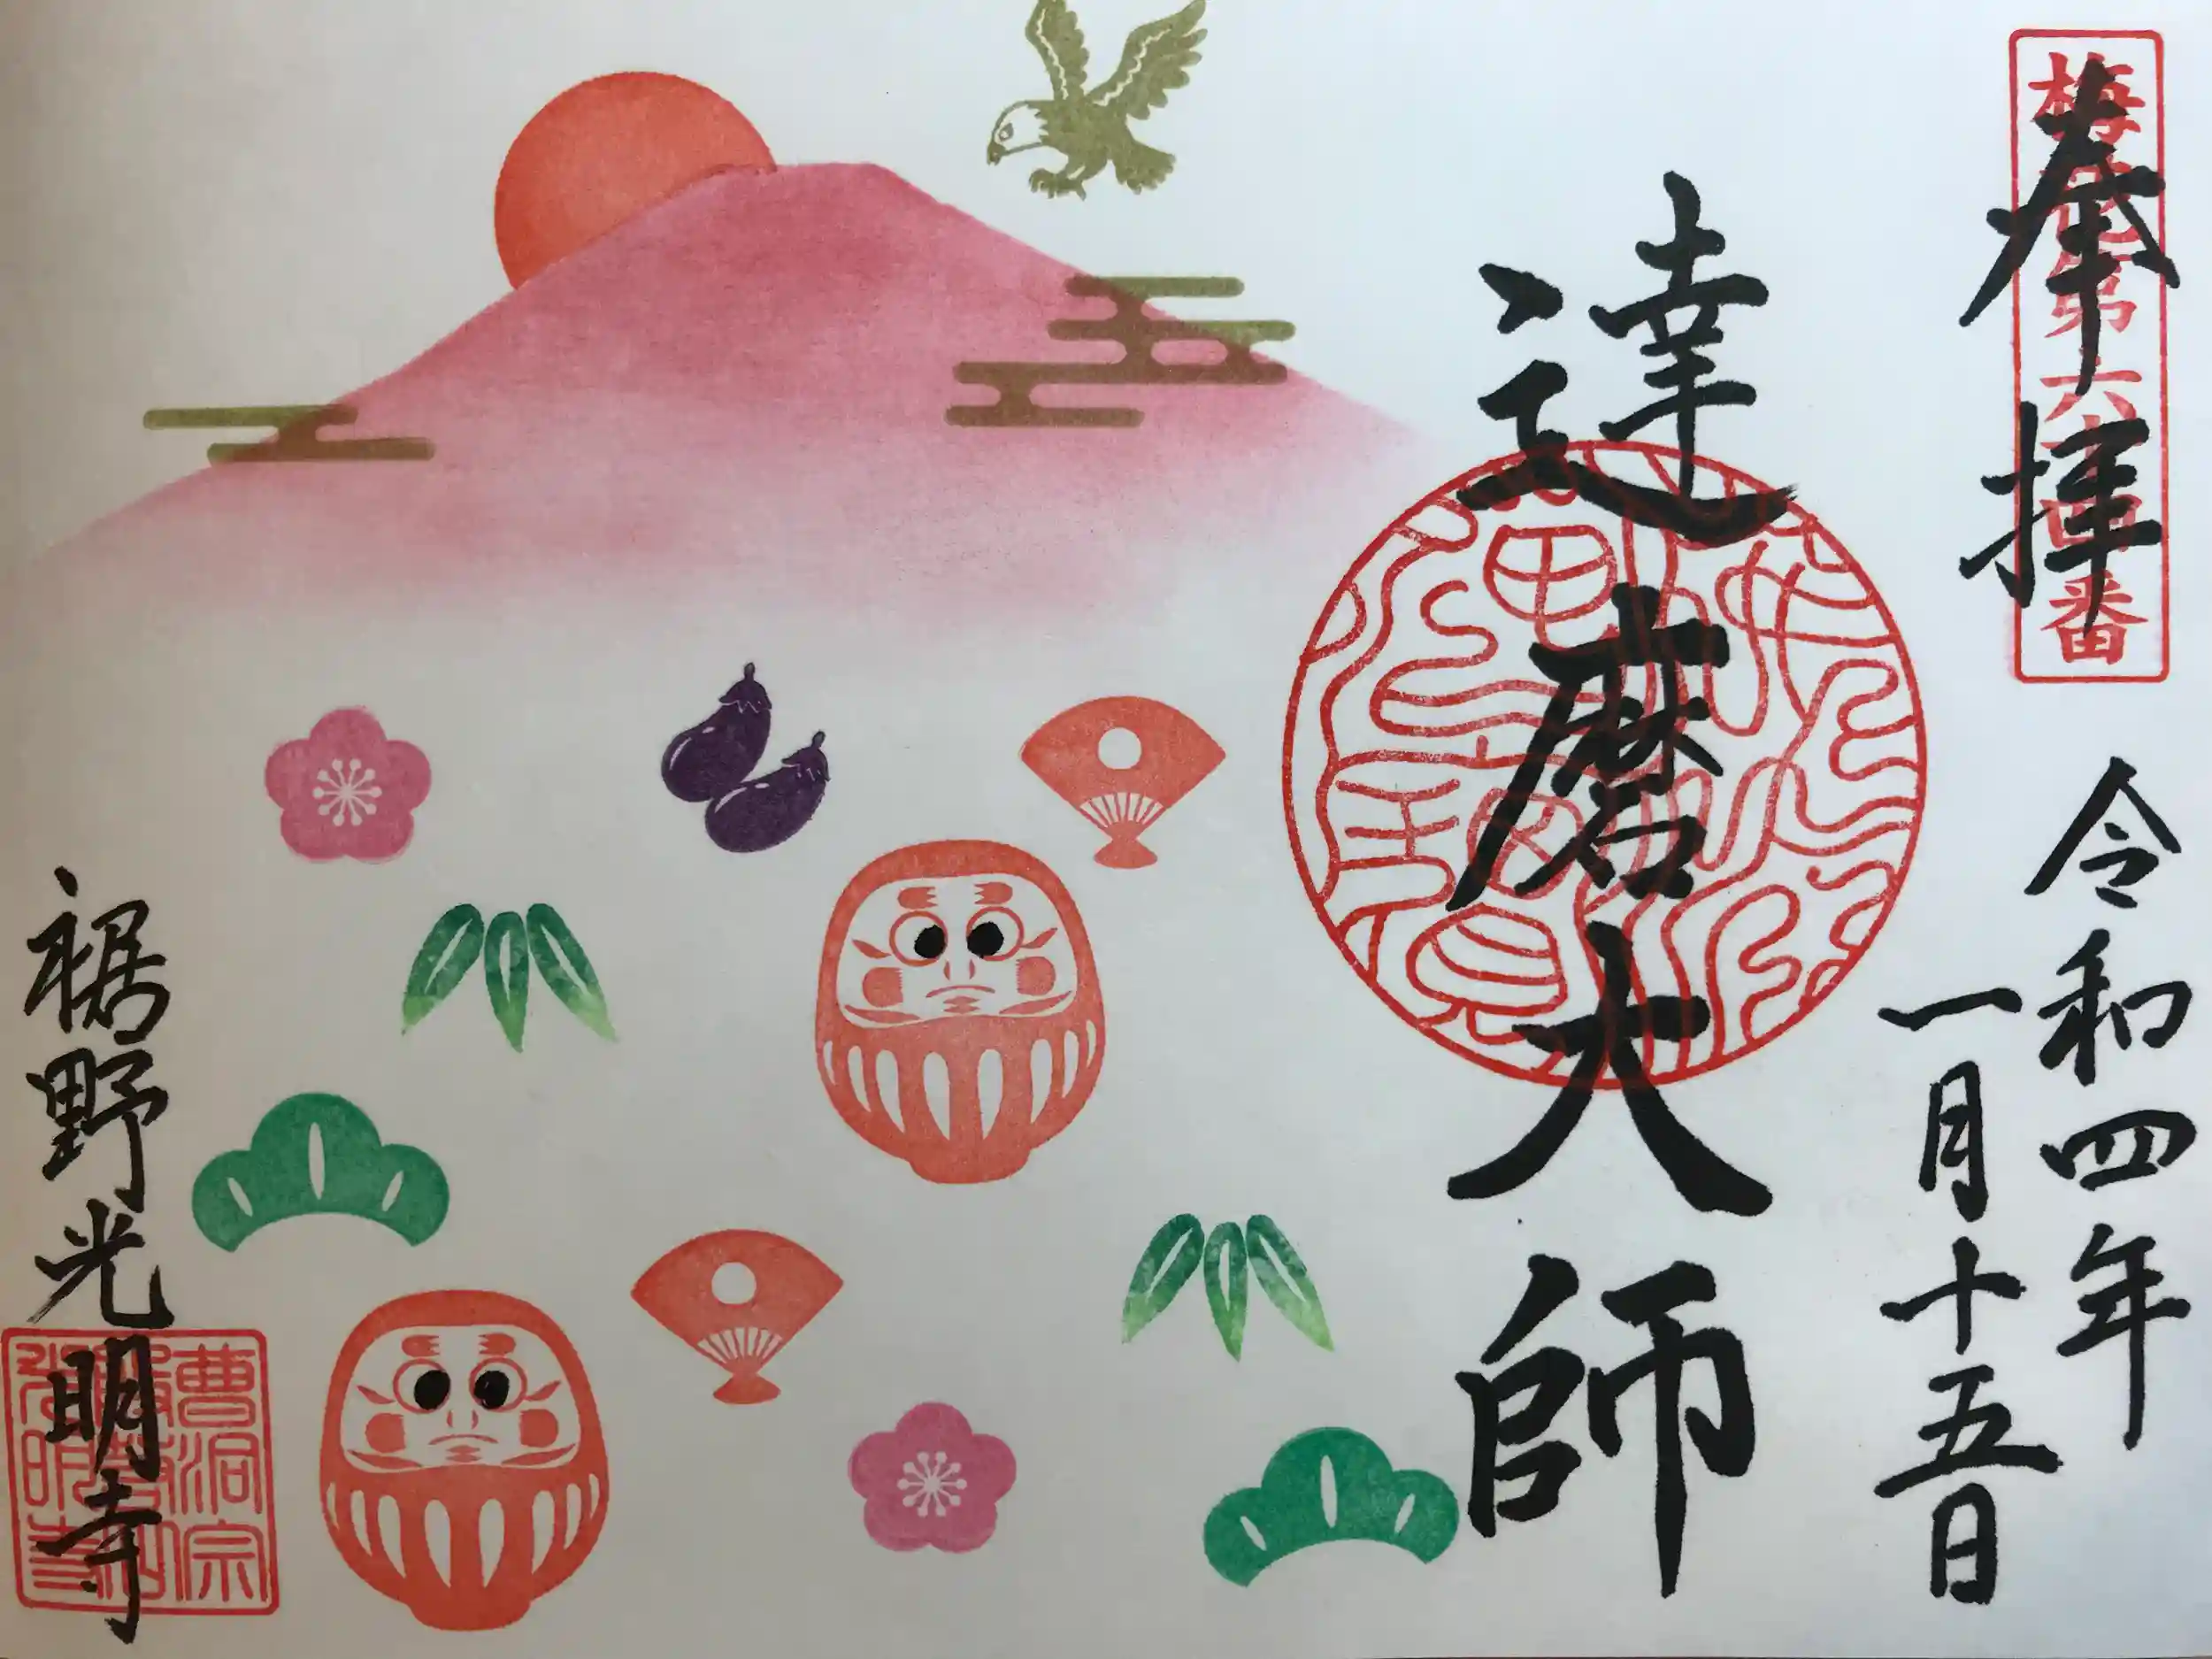 奉拝
令和四年
一月十五日
達磨大師
裾野光明寺
曹洞宗
光明寺